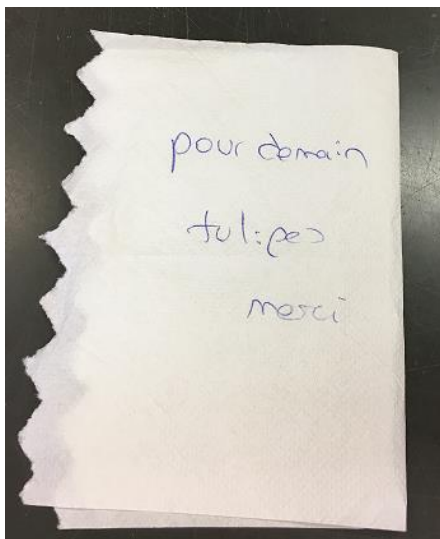 pour demain
tulipes
merci